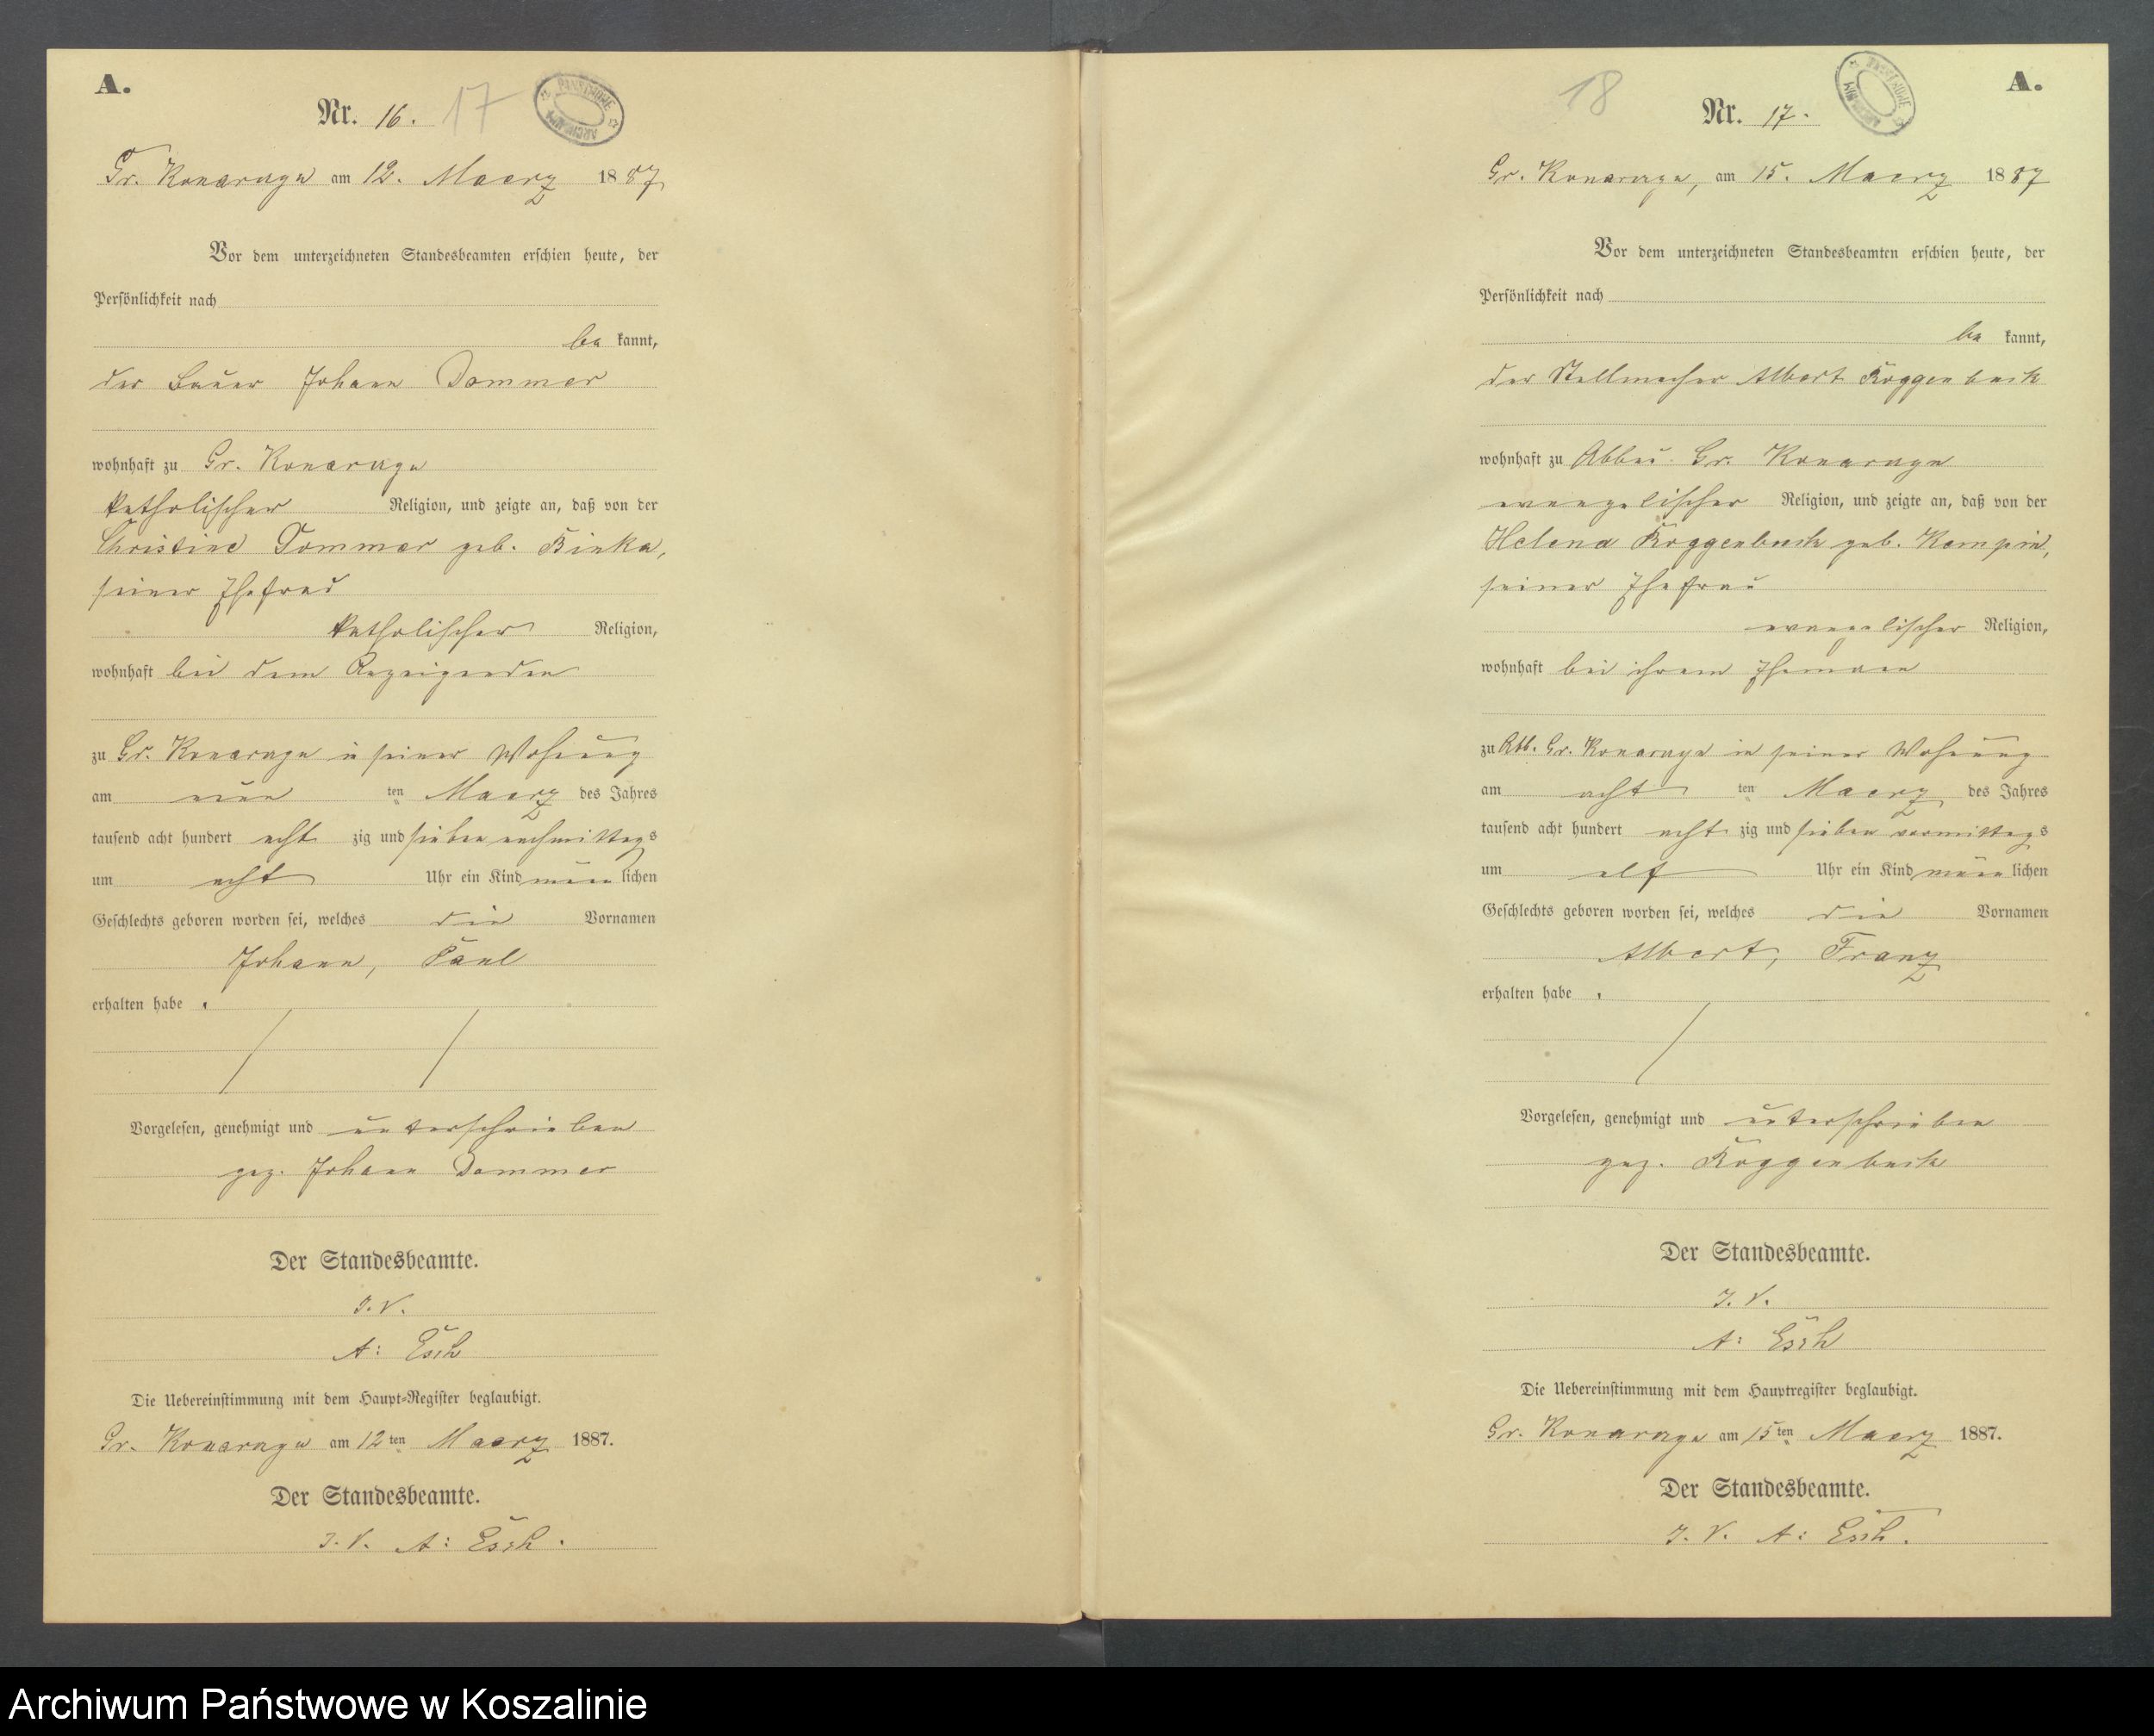 A.
Nr. 16. 17
Gr. Konarzyn am 12. Maerz 1887
Vor dem unterzeichneten Standesbeamten erschien heute, der
Persönlichkeit nach
be kannt,
der Bauer Johann Dommer
wohnhaft zu Gr. Konarzyn
katholischer Religion, und zeigte an, daß von der
Christine Dommer geb. Binka,
seiner Ehefrau
katholischer Religion,
wohnhaft bei dem Anzeigenden
zu Gr. Konarzyn in seiner Wohnung
am neun ten Maerz des Jahres
tausend acht hundert acht zig und sieben nachmittags
um acht Uhr ein Kind männ lichen
Geschlechts geboren worden sei, welches die Vornamen
Johann, Paul
erhalten habe.
Vorgelesen, genehmigt und unterschrieben
gez. Johann Dommer
Der Standesbeamte.
I. V.
A: Esch
Die Uebereinstimmung mit dem Haupt-Register beglaubigt.
Gr. Konarzyn am 12 ten Maerz 1887.
Der Standesbeamte.
I. V. A: Esch.
A.
18 Nr. 17.
Gr. Konarzyn, am 15. Maerz 1887
Vor dem unterzeichneten Standesbeamten erschien heute, der
Persönlichkeit nach
be kannt,
der Stellmacher Albert Roggenbuck
wohnhaft zu Abbau Gr. Konarzyn
evangelischer Religion, und zeigte an, daß von der
Helena Roggenbuck geb. Kempin,
seiner Ehefrau
evangelischer Religion,
wohnhaft bei ihrem Ehemann
zu Abb. Gr. Konarzyn in seiner Wohnung
am acht ten Maerz des Jahres
tausend acht hundert acht zig und sieben vormittags
um elf Uhr ein Kind männ lichen
Geschlechts geboren worden sei, welches die Vornamen
Albert, Franz
erhalten habe.
Vorgelesen, genehmigt und unterschrieben
gez. Roggenbuck
Der Standesbeamte.
I. V.
A: Esch
Die Uebereinstimmung mit dem Hauptregister beglaubigt.
Gr. Konarzyn am 15 ten Maerz 1887.
Der Standesbeamte.
I. V. A: Esch.
Archiwum Państwowe w Koszalinie